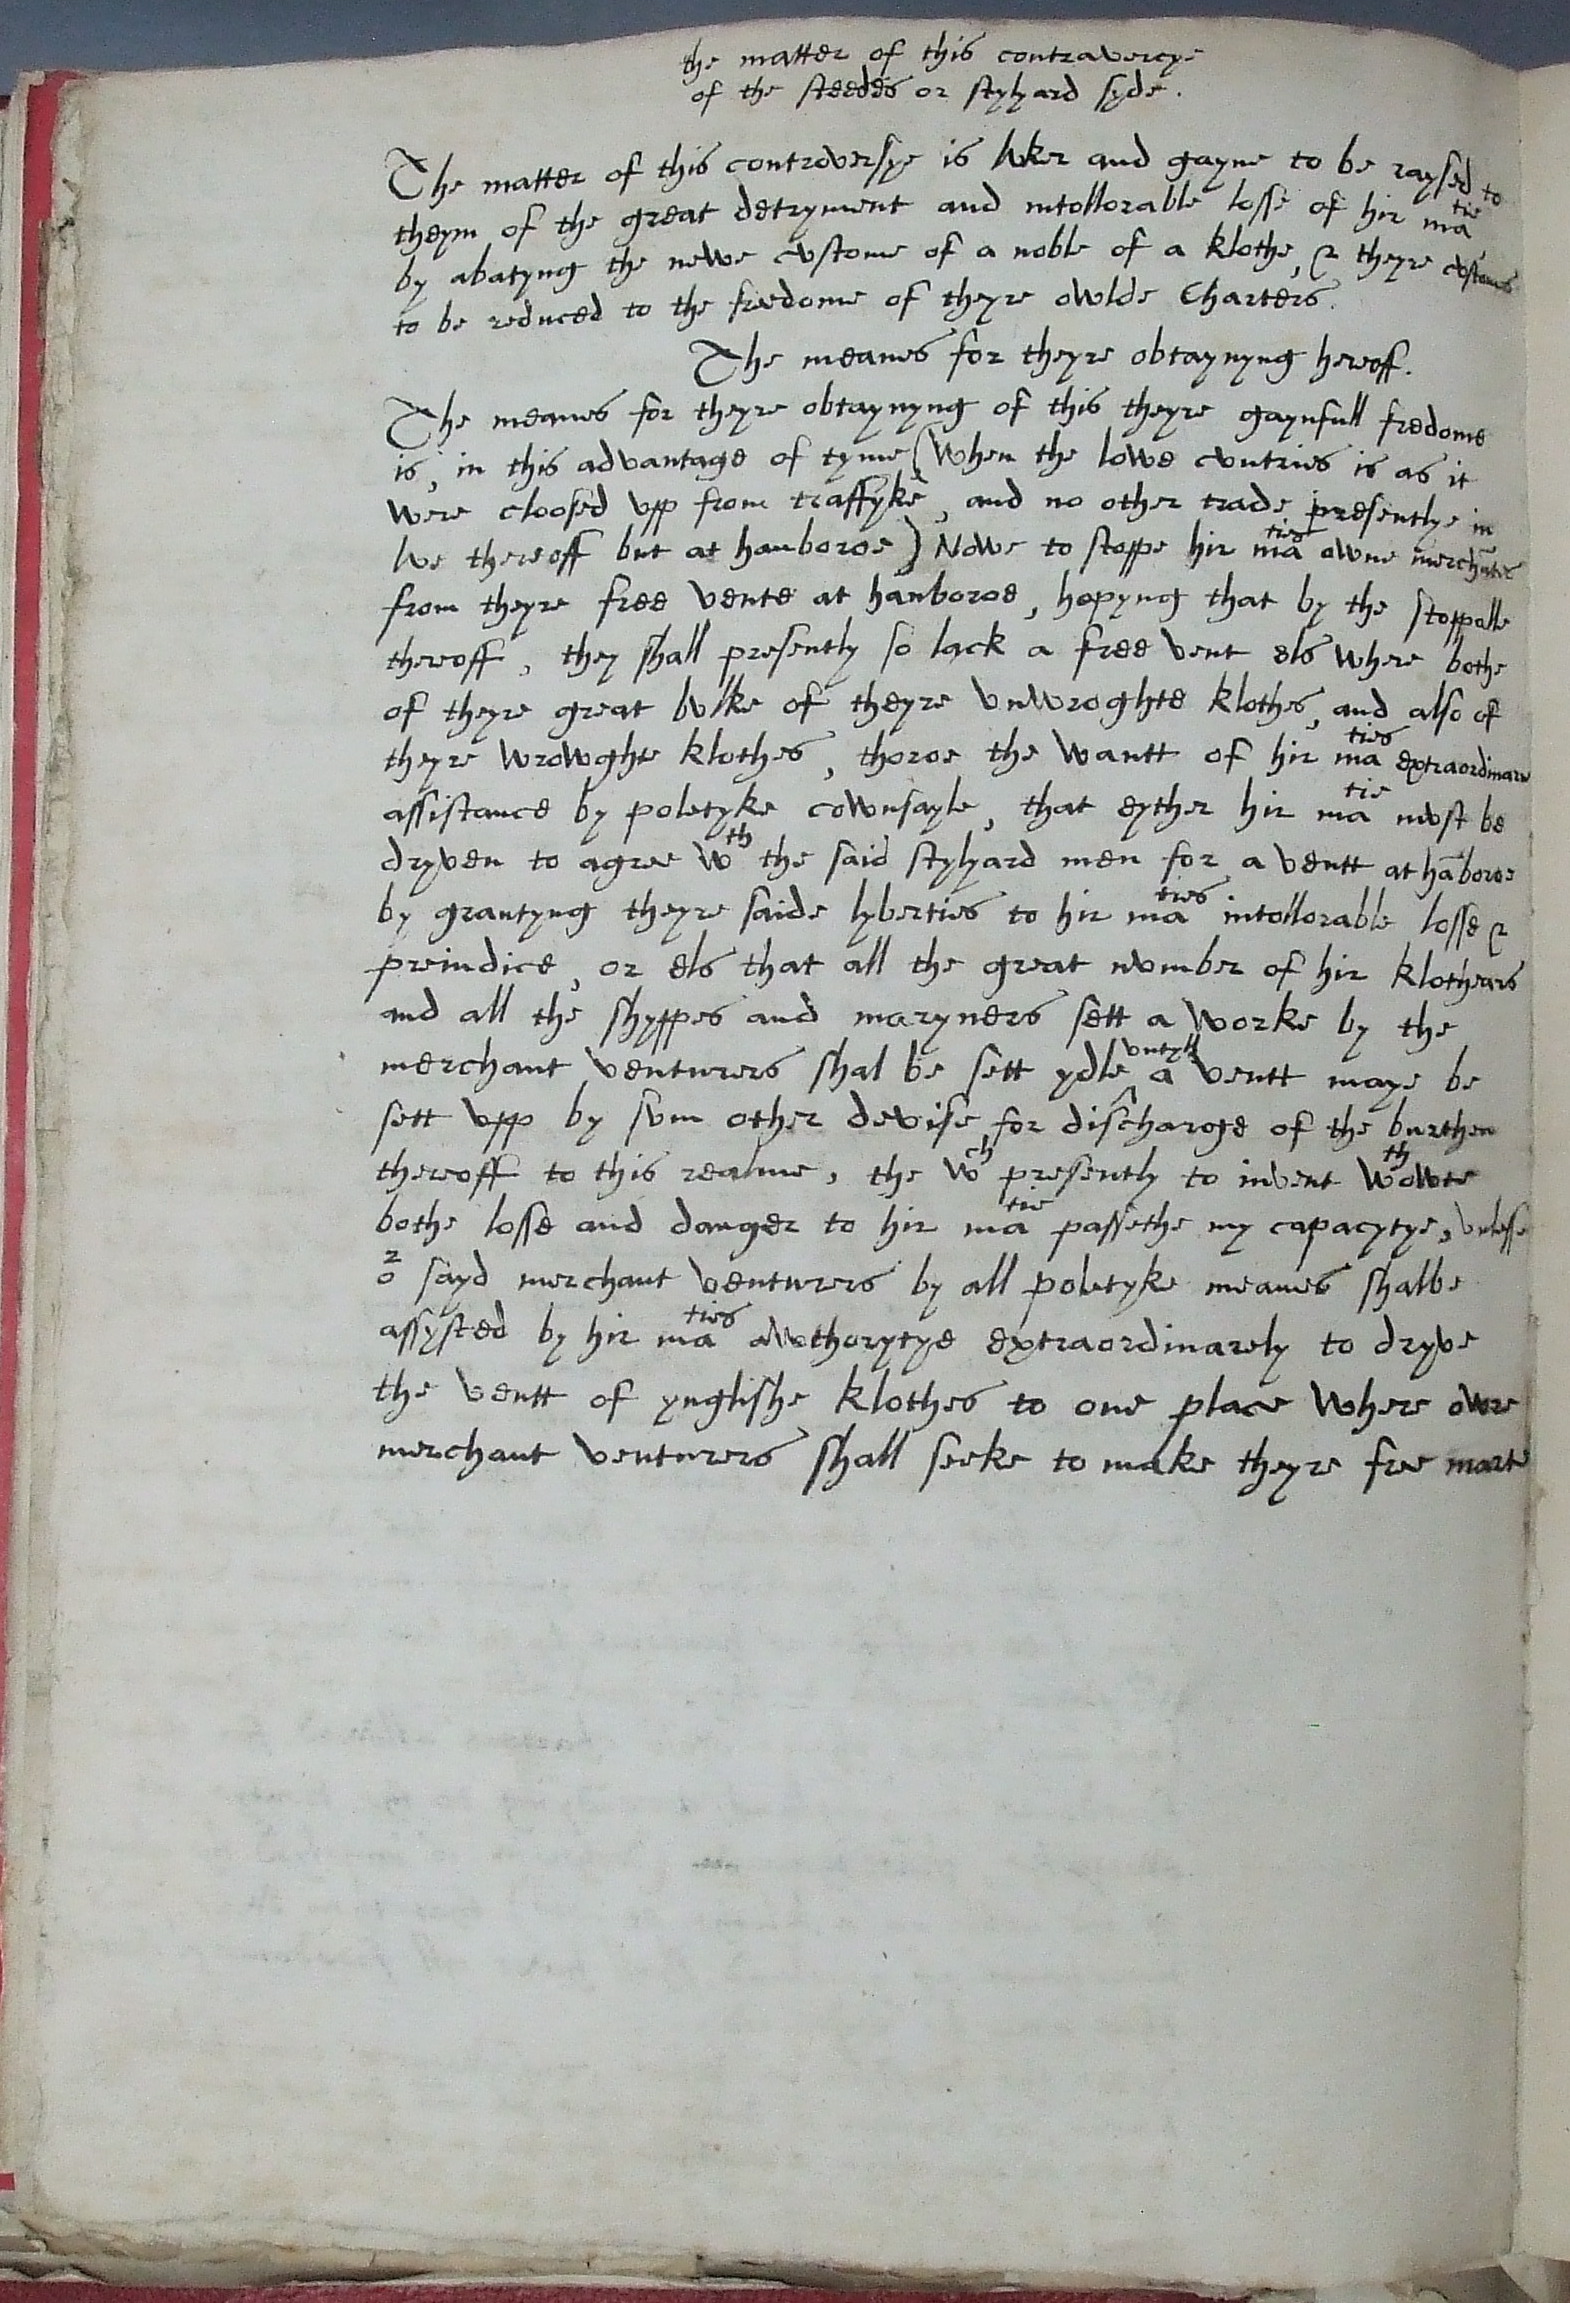 the matter of this contravercye
of the steedes or stylyard syde.
The matter of this controversye is luker and gayne to be raysed to
theym of the great detryment and intollorable losse of hir ma^tie
by abatyng the newe custome of a noble of a klothe, & theyre customes
to be reduced to the fredome of theyre owlde Charters.
The meanes for theyre obtaynyng hereoff.
The meanes for theyre obtaynyng of this theyre gaynfull fredome
is, in this advantage of tyme (When the lowe cuntries is as it
were cloosed vpp from traffyke, and no other trade presentlye in
lve thereoff but at hanboroe) Nowe to stoppe hir ma^ties owne merchātes
from theyre free vente at hanboroe, hopyng that by the stoppalle
thereoff, they shall presently so lack a free vent els where bothe
of theyre great bulke of theyre vnwroghte klothes, and also of
theyre wrowghte klothes, thoroe the wantt of hir ma^ties extraordinarie
assistance by poletyke cownsayle, that eyther hir ma^tie must be
dryven to agree w^th the said stylyard men for a ventt at hāboroe
by grantyng theyre saide lyberties to hir ma^ties intollorable losse &
preiudice, or els that all the great number of hir klothears
and all the shyppes and maryners sett a worke by the
merchant venturers shal be sett ydle vntyll a ventt maye be
sett vpp by sum other devise, for discharge of the burthen
thereoff to this realme, the w^ch presently to invent w^thowte
bothe losse and danger to hir ma^tie passethe my capacytye, vnlesse
o^r sayd merchant venturers by all poletyke meanes shalbe
assysted by hir ma^ties awthorytye extraordinarely to dryve
the ventt of ynglishe klothes to one place where owre
merchant venturers shall seeke to make theyre free marte